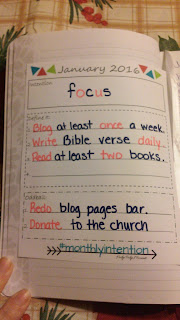 January 2016
focus
Blog at least once a week.
Write Bible verse daily.
Read at least two books.
Redo blog pages bar.
Donate to the church
#monthlyintention